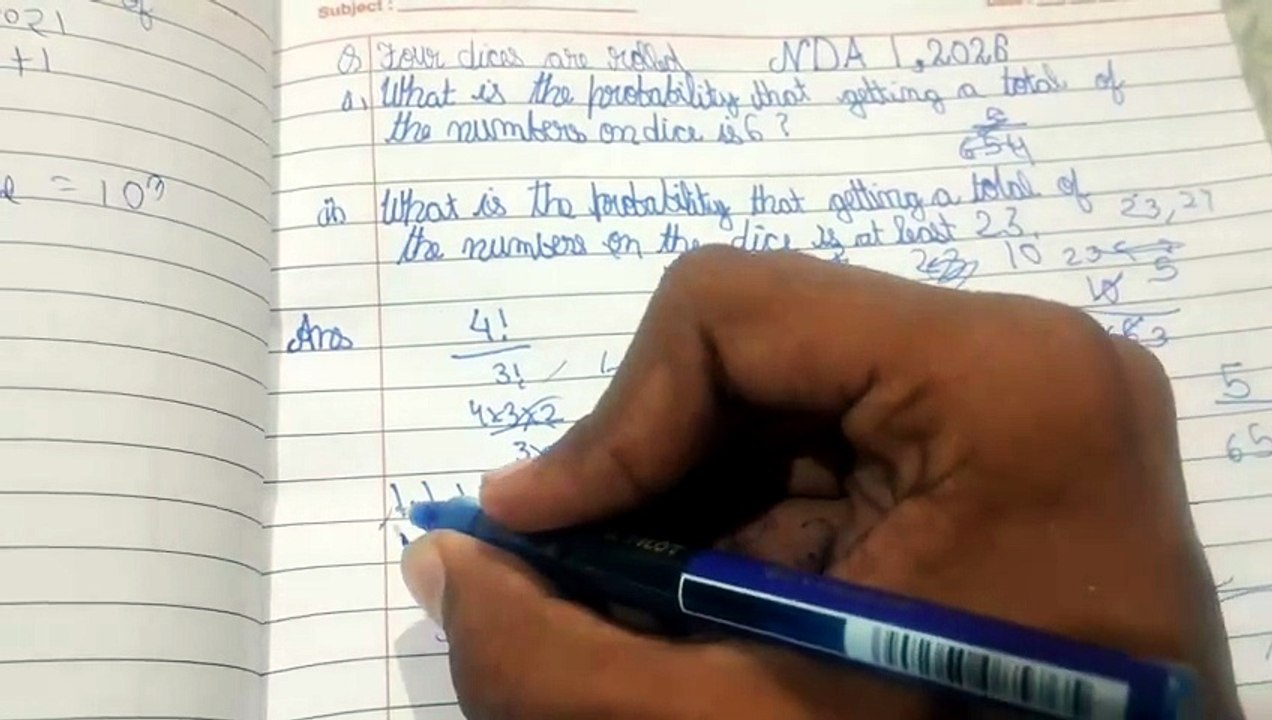 Subject :
021 of
+1
= 10^n
Q Four dices are rolled NDA 1, 2026
i, What is the probability that getting a total of
the numbers on dice is 6 ?
5
654
ii, What is the probability that getting a total of
the numbers on the dice is at least 23.
10
5
Ans 4!
3!
4x3x2
3x
5
65
PILOT